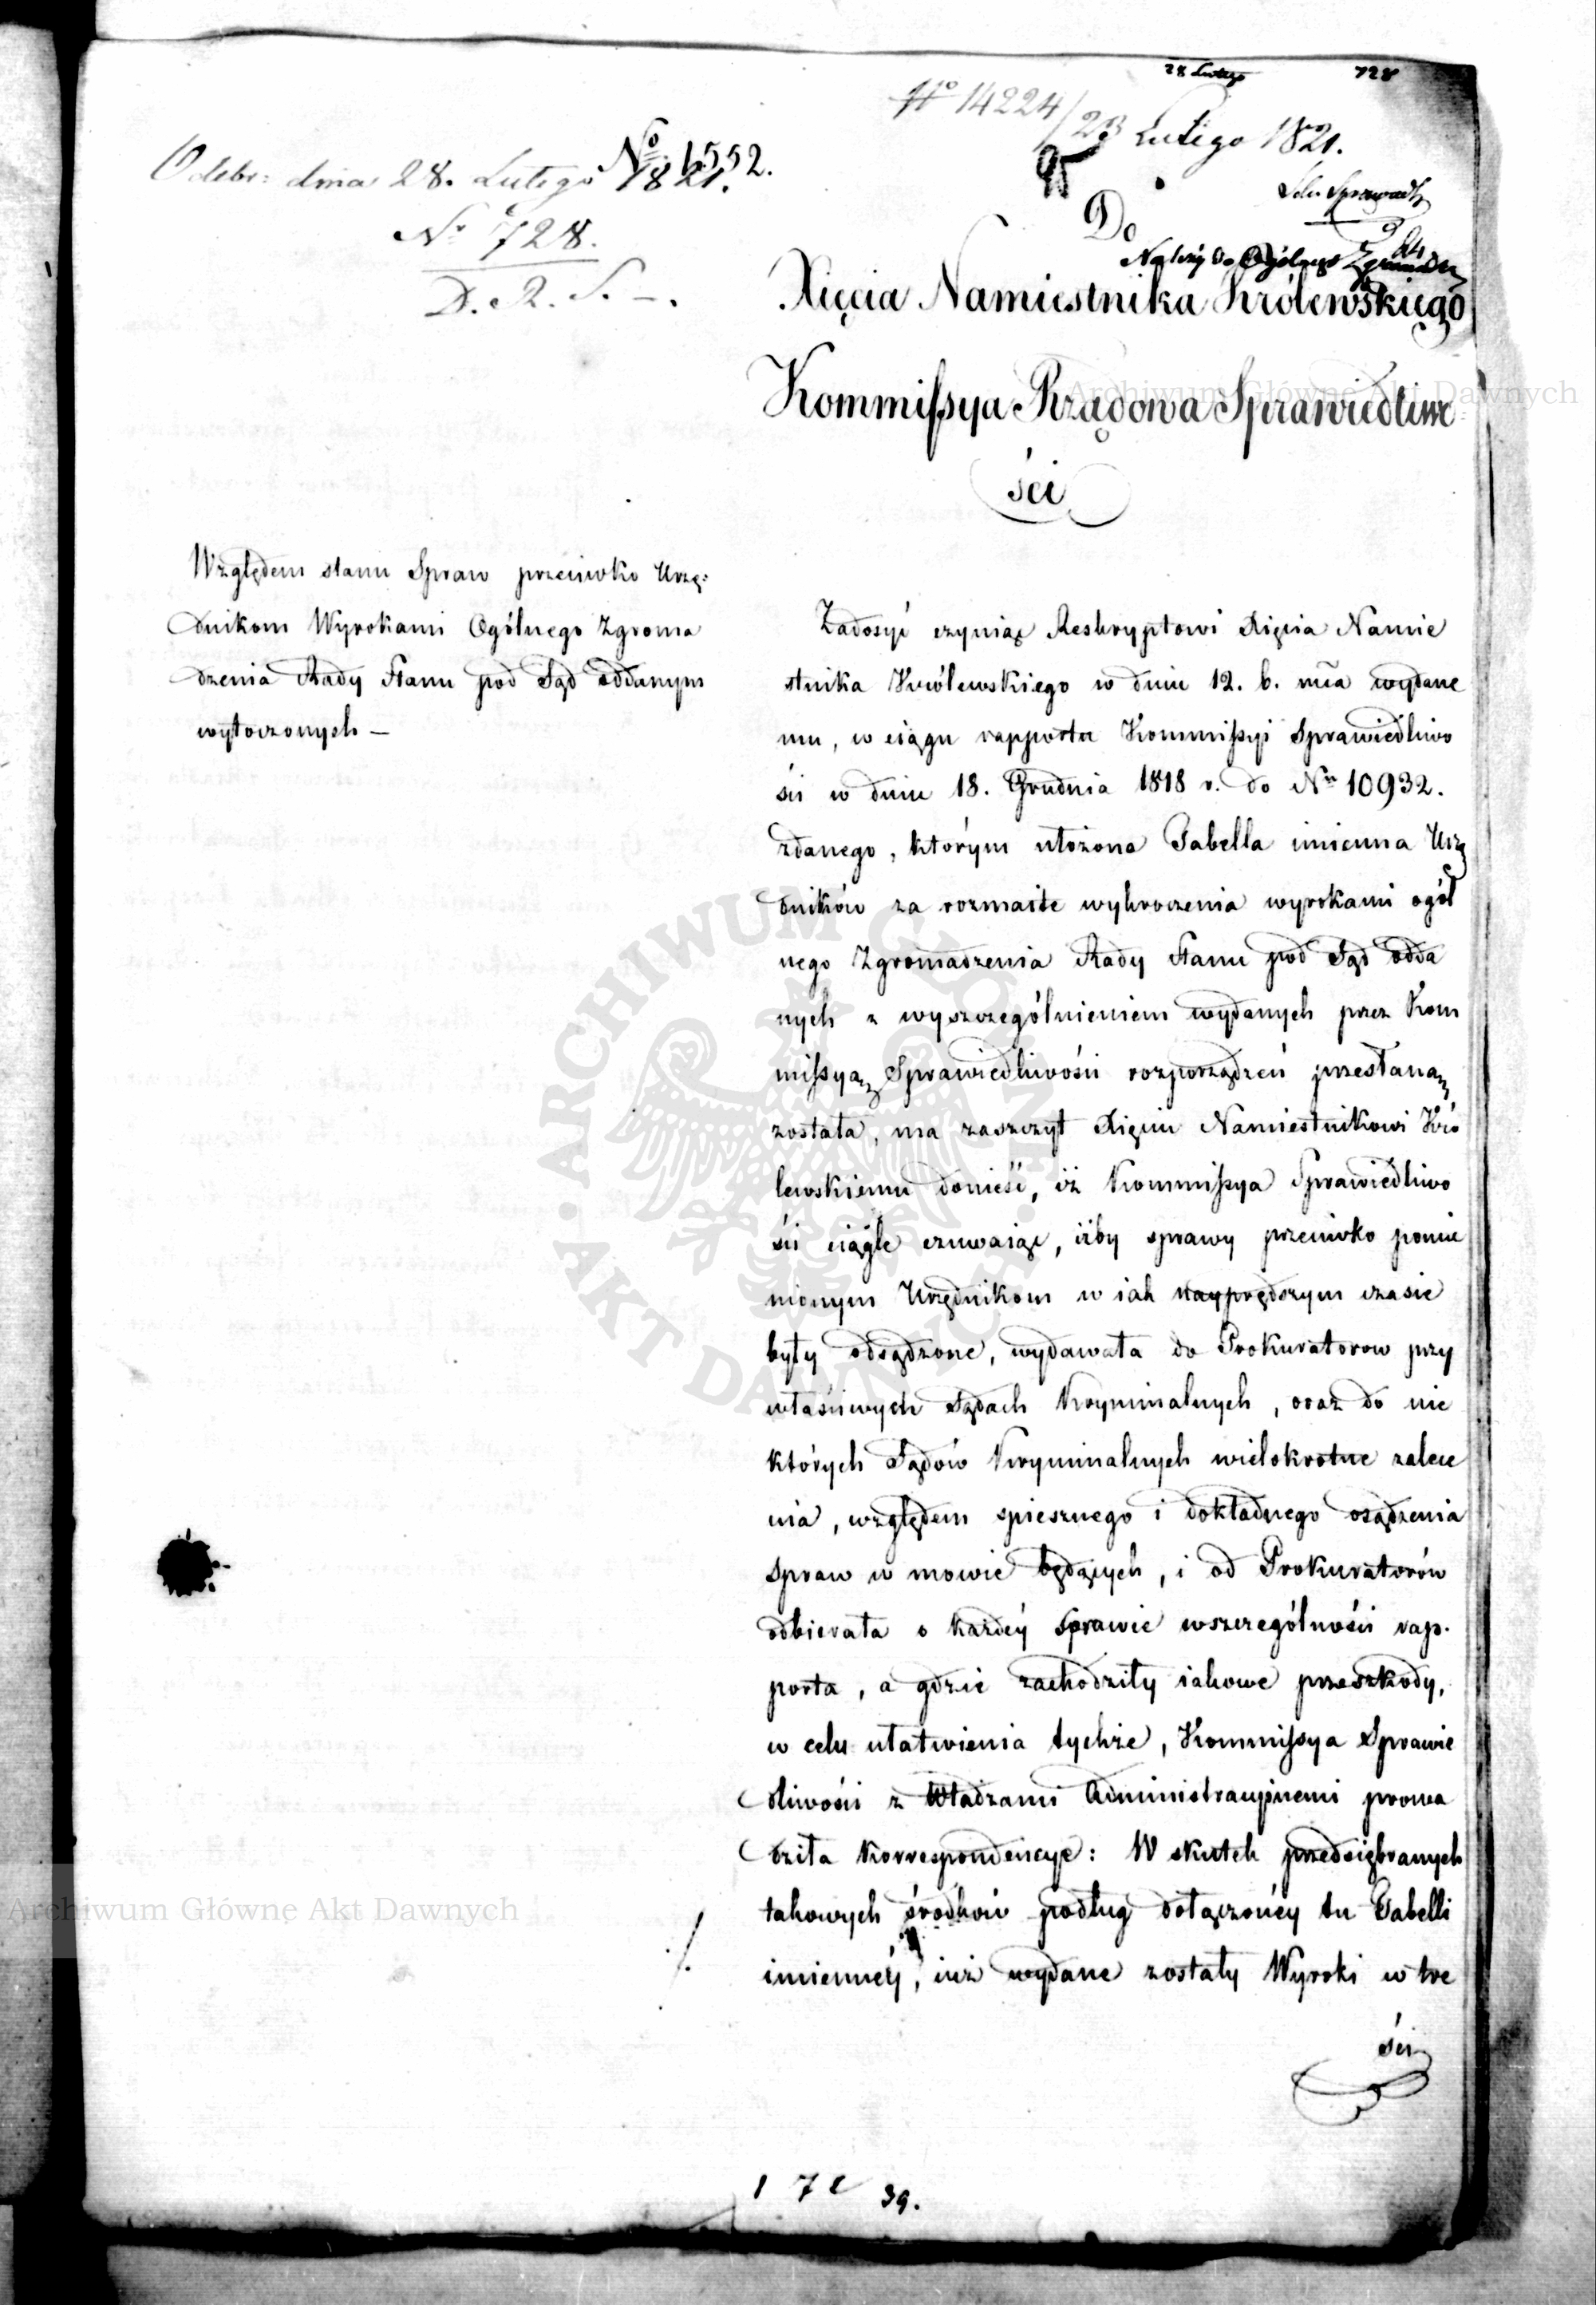 28 Lutego 728
No 14224/28 Lutego 1821.
No 1552.
Odebr: dnia 28. Lutego 1821.
No 728.
D. R. S. —.
Do
Należy do Ogólnego Zgromadze
Xięcia Namiestnika Królewskiego
Kommissya Rządowa Sprawiedliwo
ści
Względem stanu Spraw przeciwko Urzę:
dnikom Wyrokami Ogólnego Zgroma
dzenia Rady Stanu pod Sąd oddanym
wytoczonych —
Zadosyć czyniąc Reskryptowi Xięcia Namie
stnika Królewskiego w dniu 12. b. mca wydane
mu, w ciągu rapportu Kommissyi Sprawiedliwo
ści w dniu 18. Grudnia 1818 r. do Nru 10932.
zdanego, którym ułożona Tabella imienna Urzę
dników za rozmaite wykroczenia wyrokami ogól
nego Zgromadzenia Rady Stanu pod Sąd odda
nych z wyszczególnieniem wydanych przez Kom
missyą Sprawiedliwości rozporządzeń przesłaną
została, ma zaszczyt Xięciu Namiestnikowi Kró
lewskiemu donieść, iż Kommissya Sprawiedliwo
ści ciągle czuwaiąc, iżby sprawy przeciwko pomie
nionym Urzędnikom w iak nayprędszym czasie
były odsądzone, wydawała do Prokuratorow przy
właściwych Sądach Kryminalnych, oraz do nie
których Sądów Kryminalnych wielokrotne zalece
nia, względem spiesznego i dokładnego osądzenia
spraw w mowie będących, i od Prokuratorów
odbierała o każdéy sprawie wszczególności rap.
porta, a gdzie zachodziły iakowe przeszkody,
w celu ułatwienia tychże, Kommissya Sprawie
dliwości z Władzami Administracyinemi prowa
dziła korrespondencye: W skutek przedsiębranych
takowych środków podług dołączonéy tu Tabelli
imiennéy, iuż wydane zostały Wyroki w tre
ści
1 7 39.
Archiwum Główne Akt Dawnych
Archiwum Główne Akt Dawnych
ARCHIWUM GŁÓWNE
AKT DAWNYCH